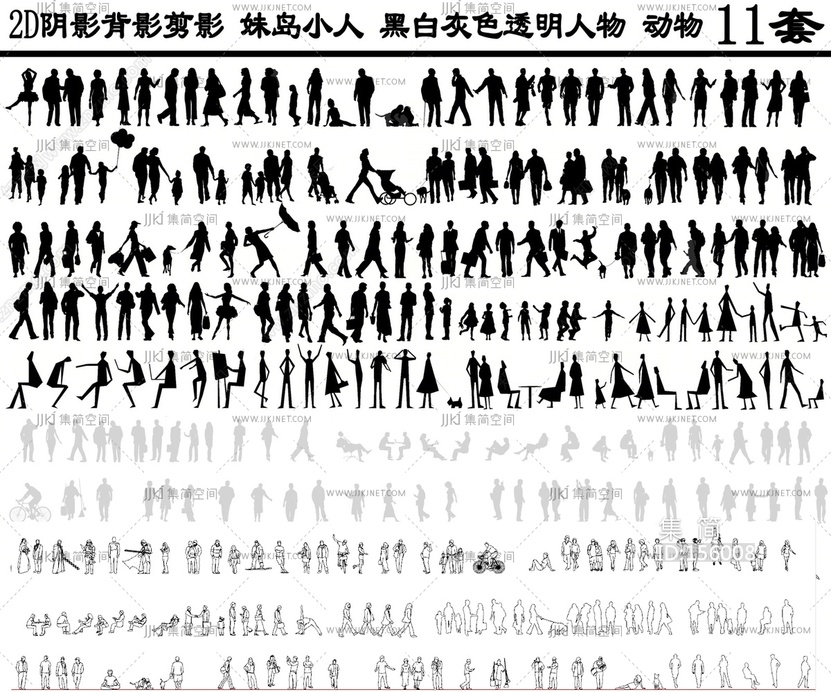 2D阴影背影剪影 妹岛小人 黑白灰色透明人物 动物 11套
JJKJ 集简空间 WWW.JJKJNET.COM
集简
ID:156008